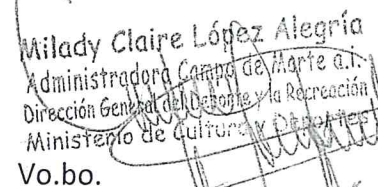 Milady Claire López Alegría
Administradora Campo de Marte a.i.
Dirección General del Deporte y la Recreación
Ministerio de Cultura y Deportes
Vo.bo.